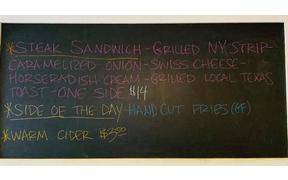 *STEAK SANDWICH-GRILLED NY STRIP-
CARAMELIZED ONION-SWISS CHEESE-
HORSERADISH CREAM-GRILLED LOCAL TEXAS
TOAST-ONE SIDE $14
*SIDE OF THE DAY HAND CUT FRIES (GF)
*WARM CIDER $3.00